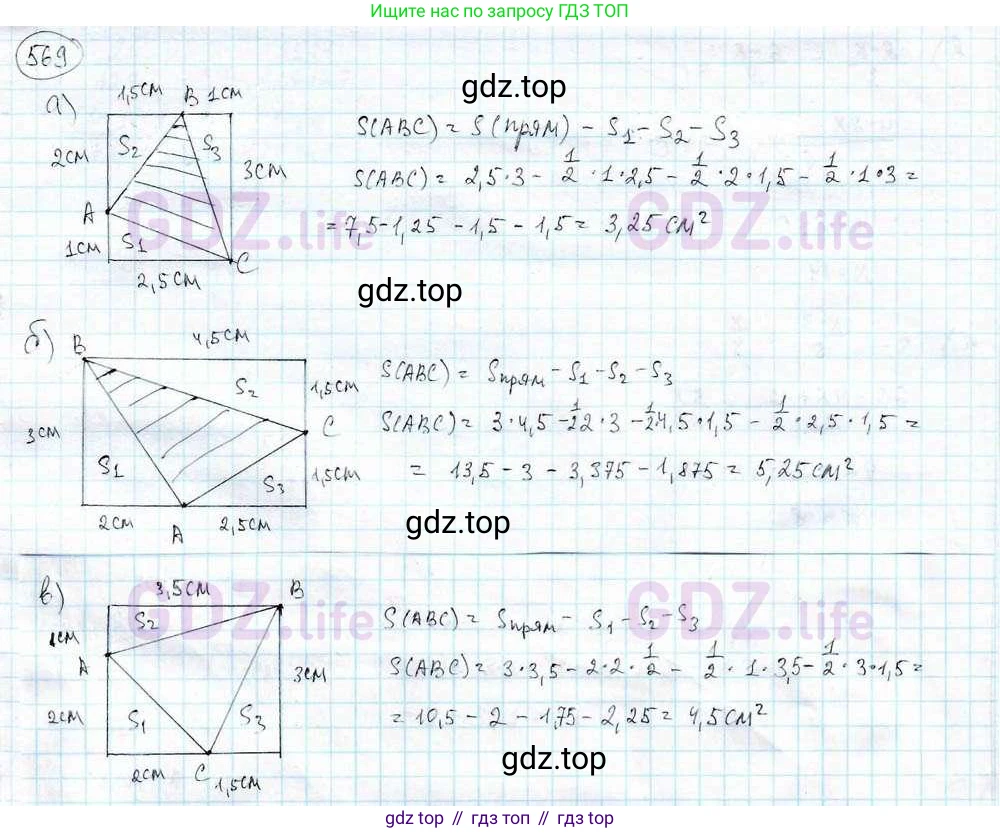 Ищите нас по запросу ГДЗ ТОП
569
а)
1,5см B 1см
gdz.top
S2 S3
2см
3см
A
1см S1
C
2,5см
S(ABC) = S(прям) - S1 - S2 - S3
S(ABC) = 2,5·3 - 1/2·1·2,5 - 1/2·2·1,5 - 1/2·1·3 =
= 7,5 - 1,25 - 1,5 - 1,5 = 3,25 см²
GDZ.life GDZ.life
gdz.top
б)
B 4,5см
S2 1,5см
3см
C
S1 1,5см
S3
2см A 2,5см
S(ABC) = Sпрям - S1 - S2 - S3
S(ABC) = 3·4,5 - 1/2 2·3 - 1/2 4,5·1,5 - 1/2·2,5·1,5 =
= 13,5 - 3 - 3,375 - 1,875 = 5,25см²
gdz.top
в)
3,5см B
S2
1см
A
3см
2см S1 S3
2см C 1,5см
S(ABC) = Sпрям - S1 - S2 - S3
S(ABC) = 3·3,5 - 2·2·1/2 - 1/2·1·3,5 - 1/2·3·1,5 =
= 10,5 - 2 - 1,75 - 2,25 = 4,5см²
GDZ.life GDZ.life
gdz.top
gdz.top // гдз топ // гдз top